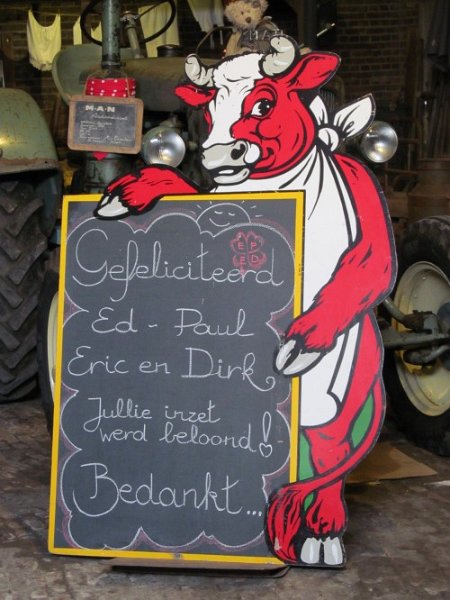 M·A·N
Gefeliciteerd
E P
E D
Ed - Paul
Eric en Dirk
Jullie inzet
werd beloond!
Bedankt...